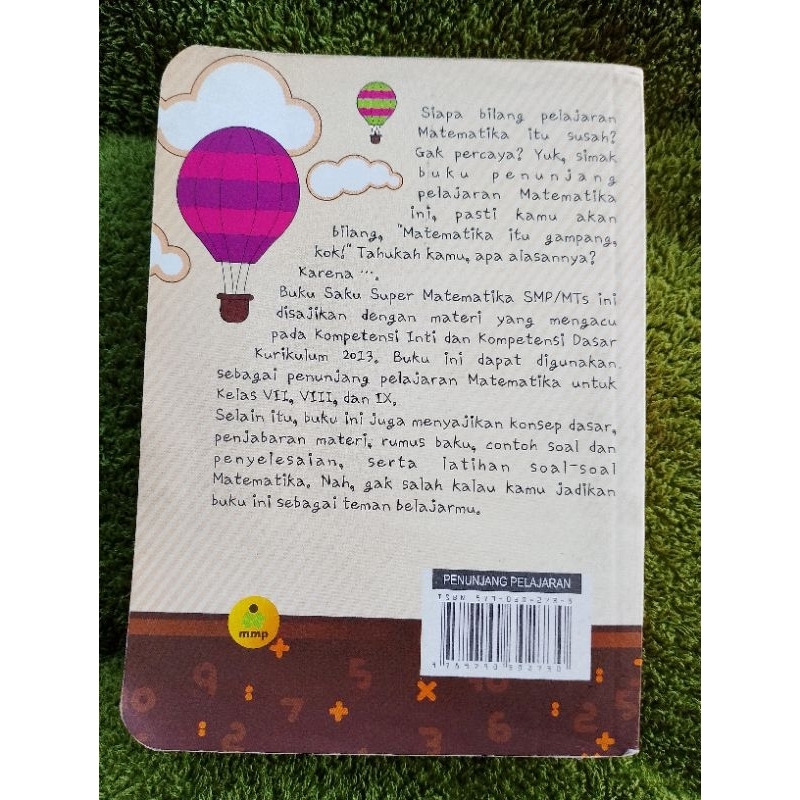 Siapa bilang pelajaran
Matematika itu susah?
Gak percaya? Yuk, simak
buku penunjang
pelajaran Matematika
ini, pasti kamu akan
bilang, "Matematika itu gampang,
kok!" Tahukah kamu, apa alasannya?
Karena ....
Buku Saku Super Matematika SMP/MTs ini
disajikan dengan materi yang mengacu
pada Kompetensi Inti dan Kompetensi Dasar
Kurikulum 2013. Buku ini dapat digunakan
sebagai penunjang pelajaran Matematika untuk
Kelas VII, VIII, dan IX.
Selain itu, buku ini juga menyajikan konsep dasar,
penjabaran materi, rumus baku, contoh soal dan
penyelesaian, serta latihan soal-soal
Matematika. Nah, gak salah kalau kamu jadikan
buku ini sebagai teman belajarmu.
PENUNJANG PELAJARAN
ISBN
mmp